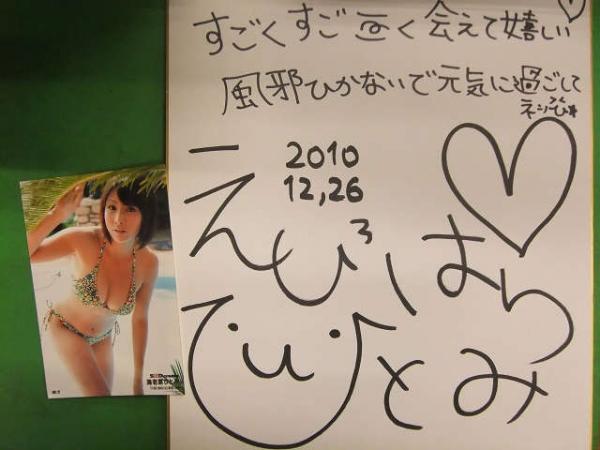 すごくすごーく会えて嬉しい♡
風邪ひかないで元気に過ごして
ネッ
2010
12,26
えびはら
ひとみ
海老原ひとみ